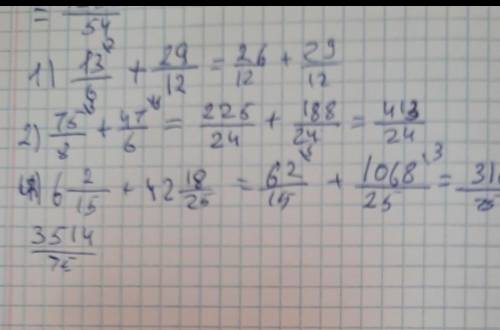 = /54
1) 13/6 + 29/12 = 26/12 + 29/12
2) 75/8 + 47/6 = 225/24 + 188/24 = 413/24
6 2/15 + 42 18/25 = 62/15 + 1068/25 =
3514/75